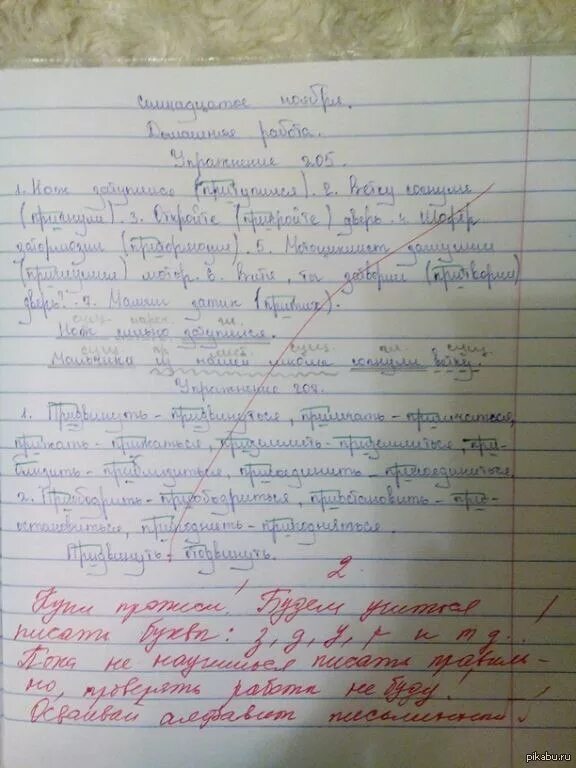 Семнадцатое ноября.
Домашнее работа.
Упражнение 205.
1. Нож затупился (притупился). 2. Ветку согнули
(пригнули). 3. Откройте (прикройте) дверь. 4. Шофёр
затормозил (притормозил). 5. Мотоциклист заглушил
(приглушил) мотор. 6. Витя, ты затворил (притворил)
дверь? 7. Малыш затих (притих).
сущ. нареч. гл.
Нож сильно затупился.
сущ. пр. мест. сущ. гл. сущ.
Мальчики из нашей школы согнули ветку.
Упражнение 208.
1. Придвинуть - придвинуться, примчать - примчаться,
прижать - прижаться, приземлить - приземлиться, при-
близить - приблизиться, присоединить - присоединиться.
2. Приободрить - приободриться, приостановить - при-
остановиться, приподнять - приподняться.
Придвинуть - подвинуть.
2.
Купи прописи! Будем учиться
писать буквы: з, д, у, г и т д...!
Пока не научишься писать правиль-
но, проверять работы не буду!
Осваивай алфавит письменный!
pikabu.ru